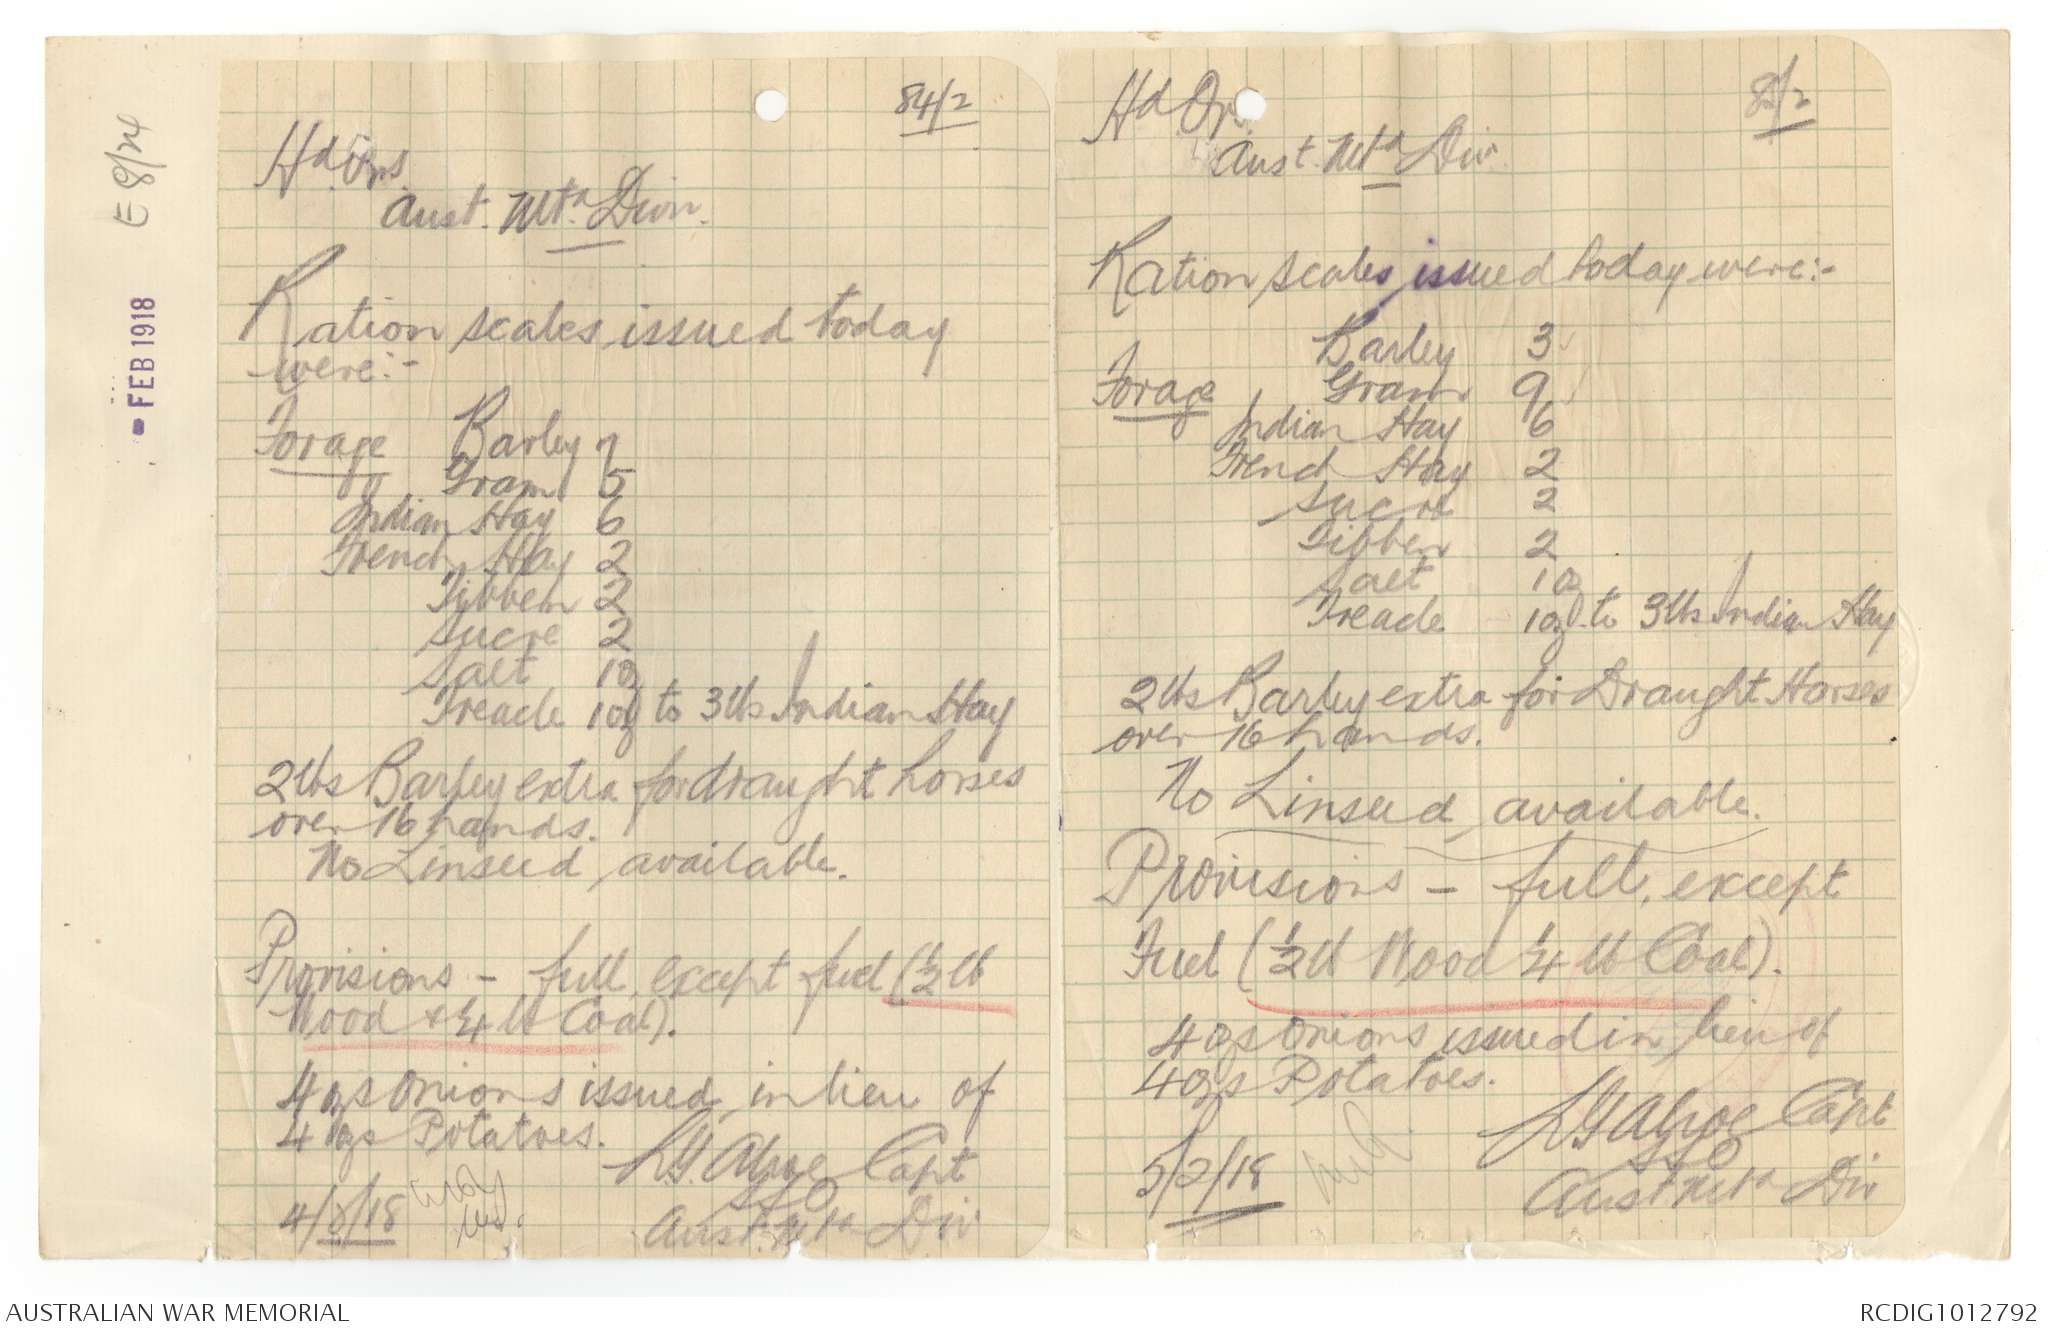 E 8/24
- FEB 1918
84/2
Hd. Qrs.
Aust. Mtd. Divn.
Ration scales issued today
were:-
Forage Barley 7
Gram 5
Indian Hay 6
French Hay 2
Tibben 2
Sucre 2
Salt 1oz
Treacle 1oz to 3lbs Indian Hay
2lbs Barley extra for draught horses
over 16 hands.
No Linseed available.
Provisions - full, except fuel (½ lb
Wood & ¼ lb Coal).
4 ozs Onions issued in lieu of
4 ozs Potatoes.
Capt
SSO
4/2/18
Aust. Mtd Div
8/2
Hd. Qrs.
Aust. Mtd Div.
Ration scales issued today were:-
Barley 3
Forage Gram 9
Indian Hay 6
French Hay 2
Sucre 2
Tibben 2
Salt 1oz
Treacle 1oz to 3lbs Indian Hay
2lbs Barley extra for Draught Horses
over 16 hands.
No Linseed available.
Provisions - full, except
Fuel (½ lb Wood ¼ lb Coal).
4 ozs Onions issued in lieu of
4 ozs Potatoes.
Capt
SSO
5/2/18
Aust Mtd Div
AUSTRALIAN WAR MEMORIAL
RCDIG1012792